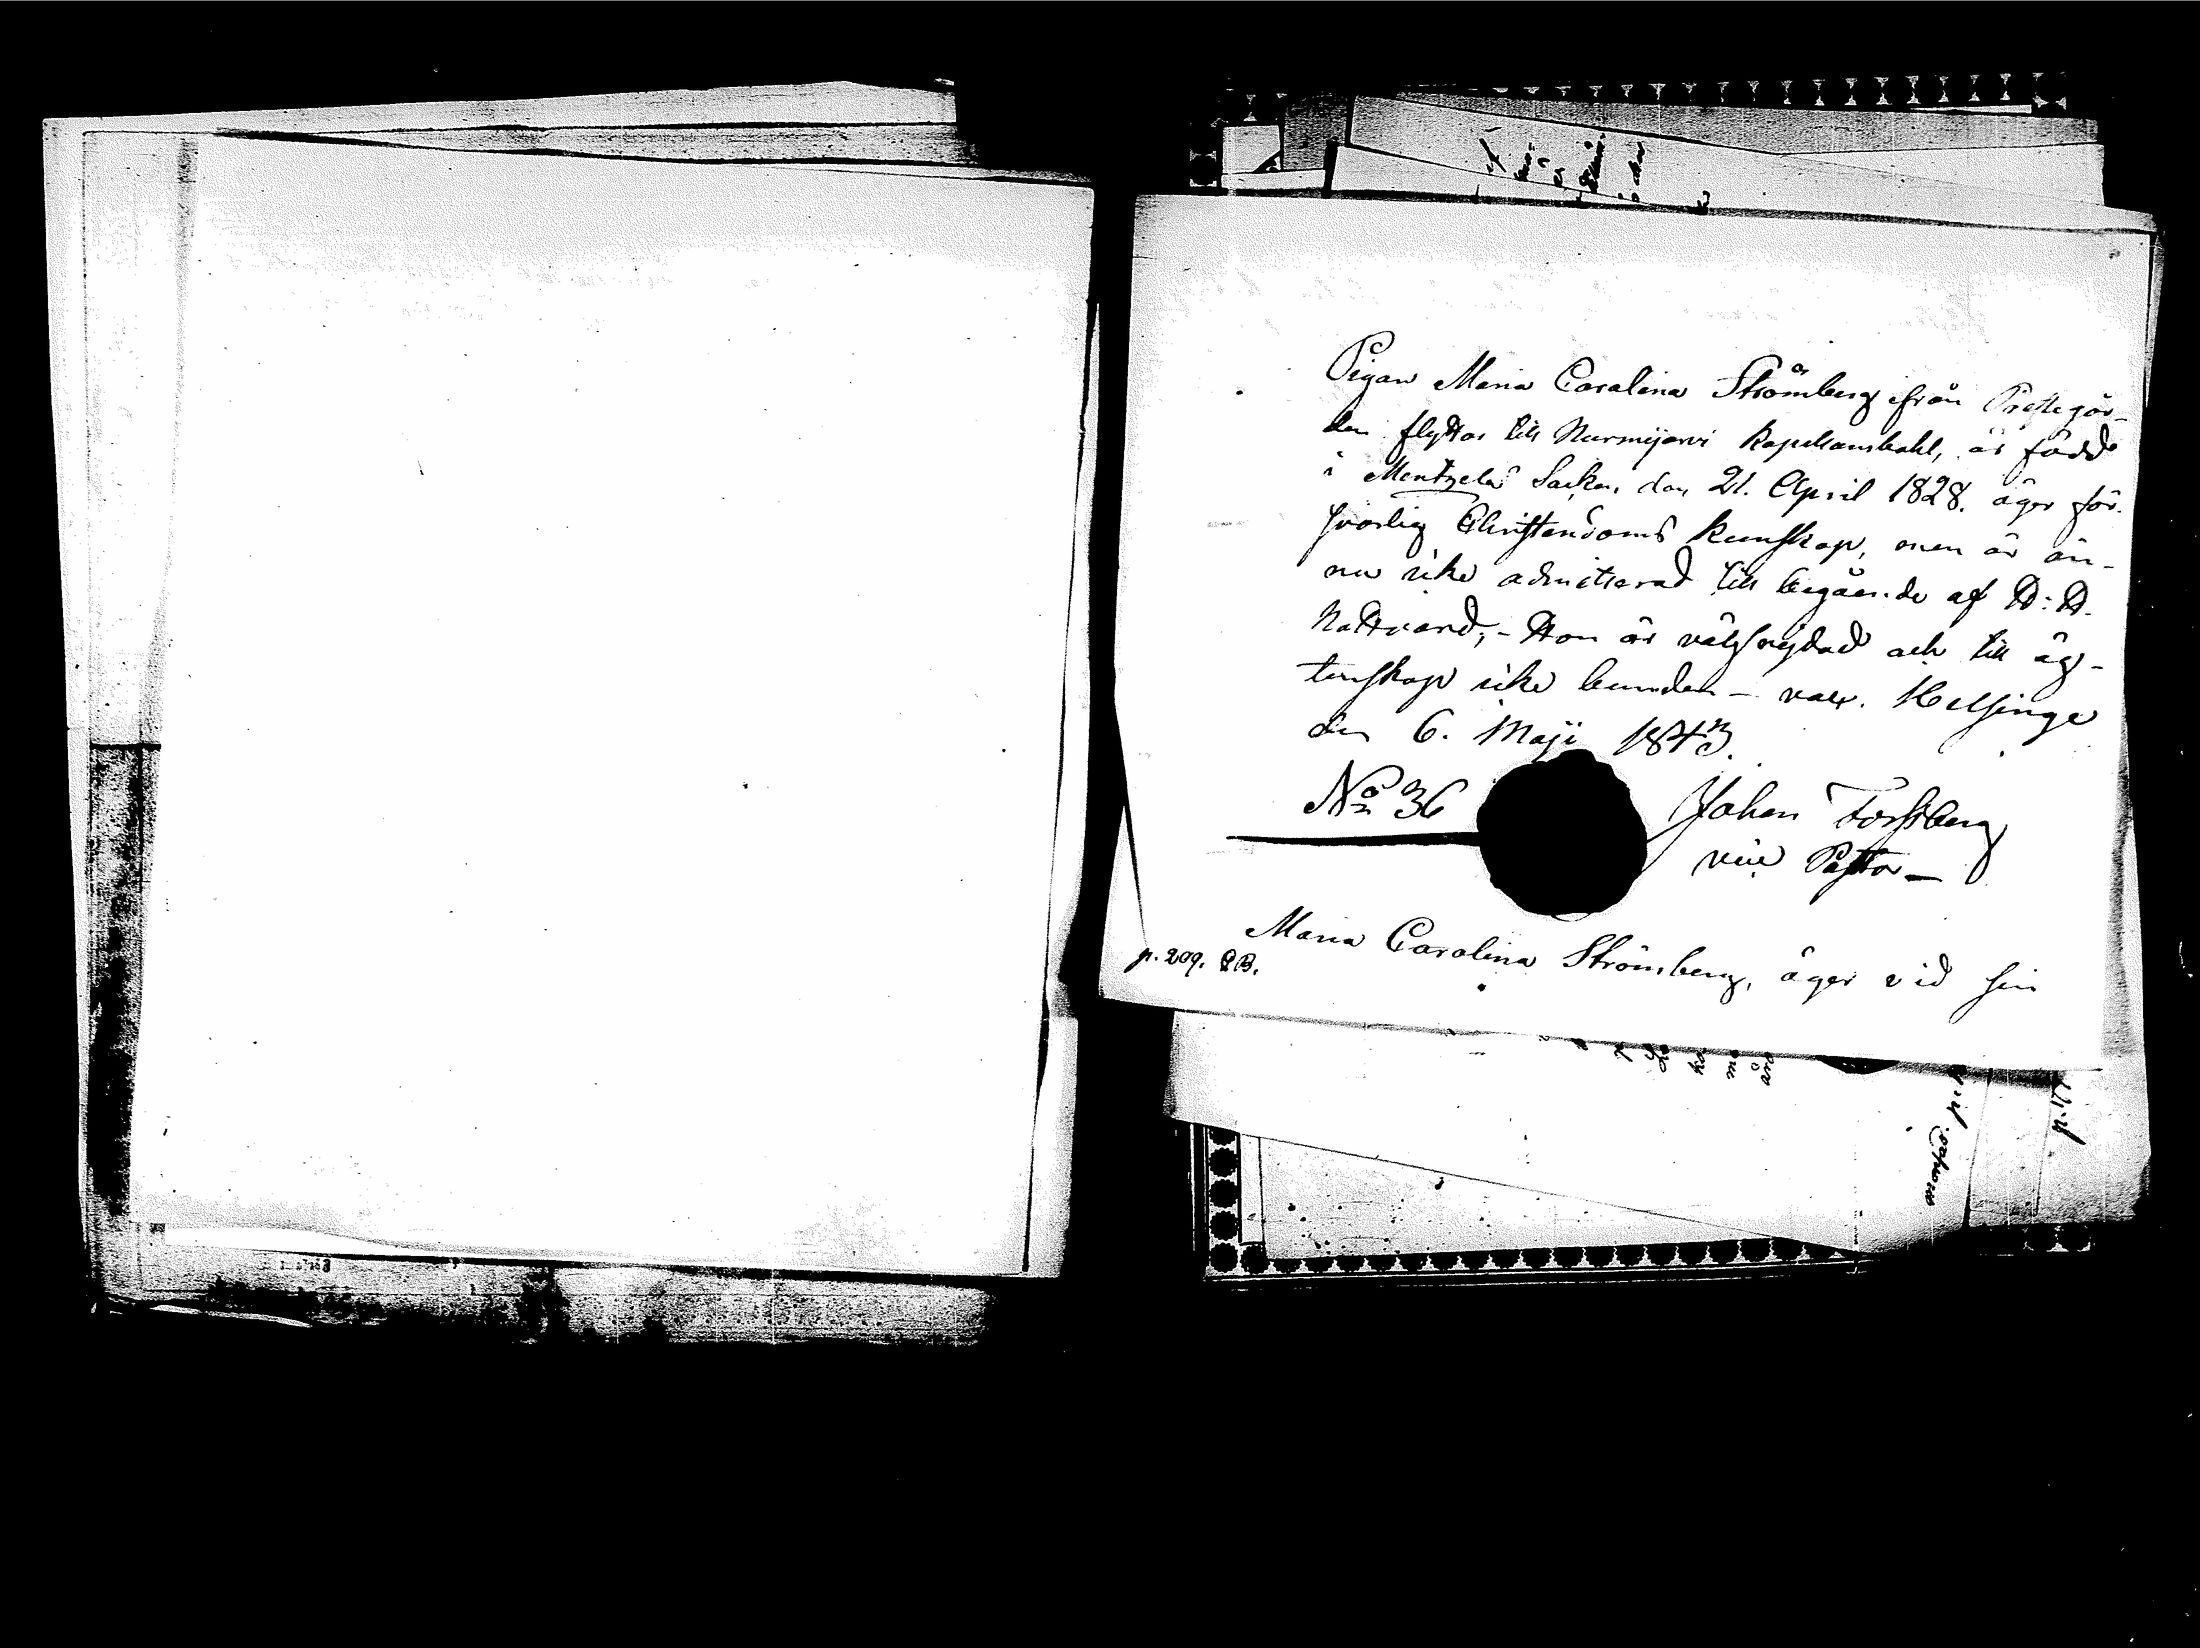 Pigan Maria Carolina Strömberg från Prestegår-
den flyttar till Nurmijervi Kapellansbohl, är född
i Mentzelä Socken den 21. April 1828. äger för-
svarlig Christendoms kunskap, men är än-
nu icke admitterad till begående af H: H.
Nattvard; - Hon är välfrejdad och till äg-
tenskap icke bunden - Helsinge
den 6. Maji 1843.
No 36
Johan Forssberg
vice Pastor
Maria Carolina Strömberg, äger vid sin
p. 209. CB.